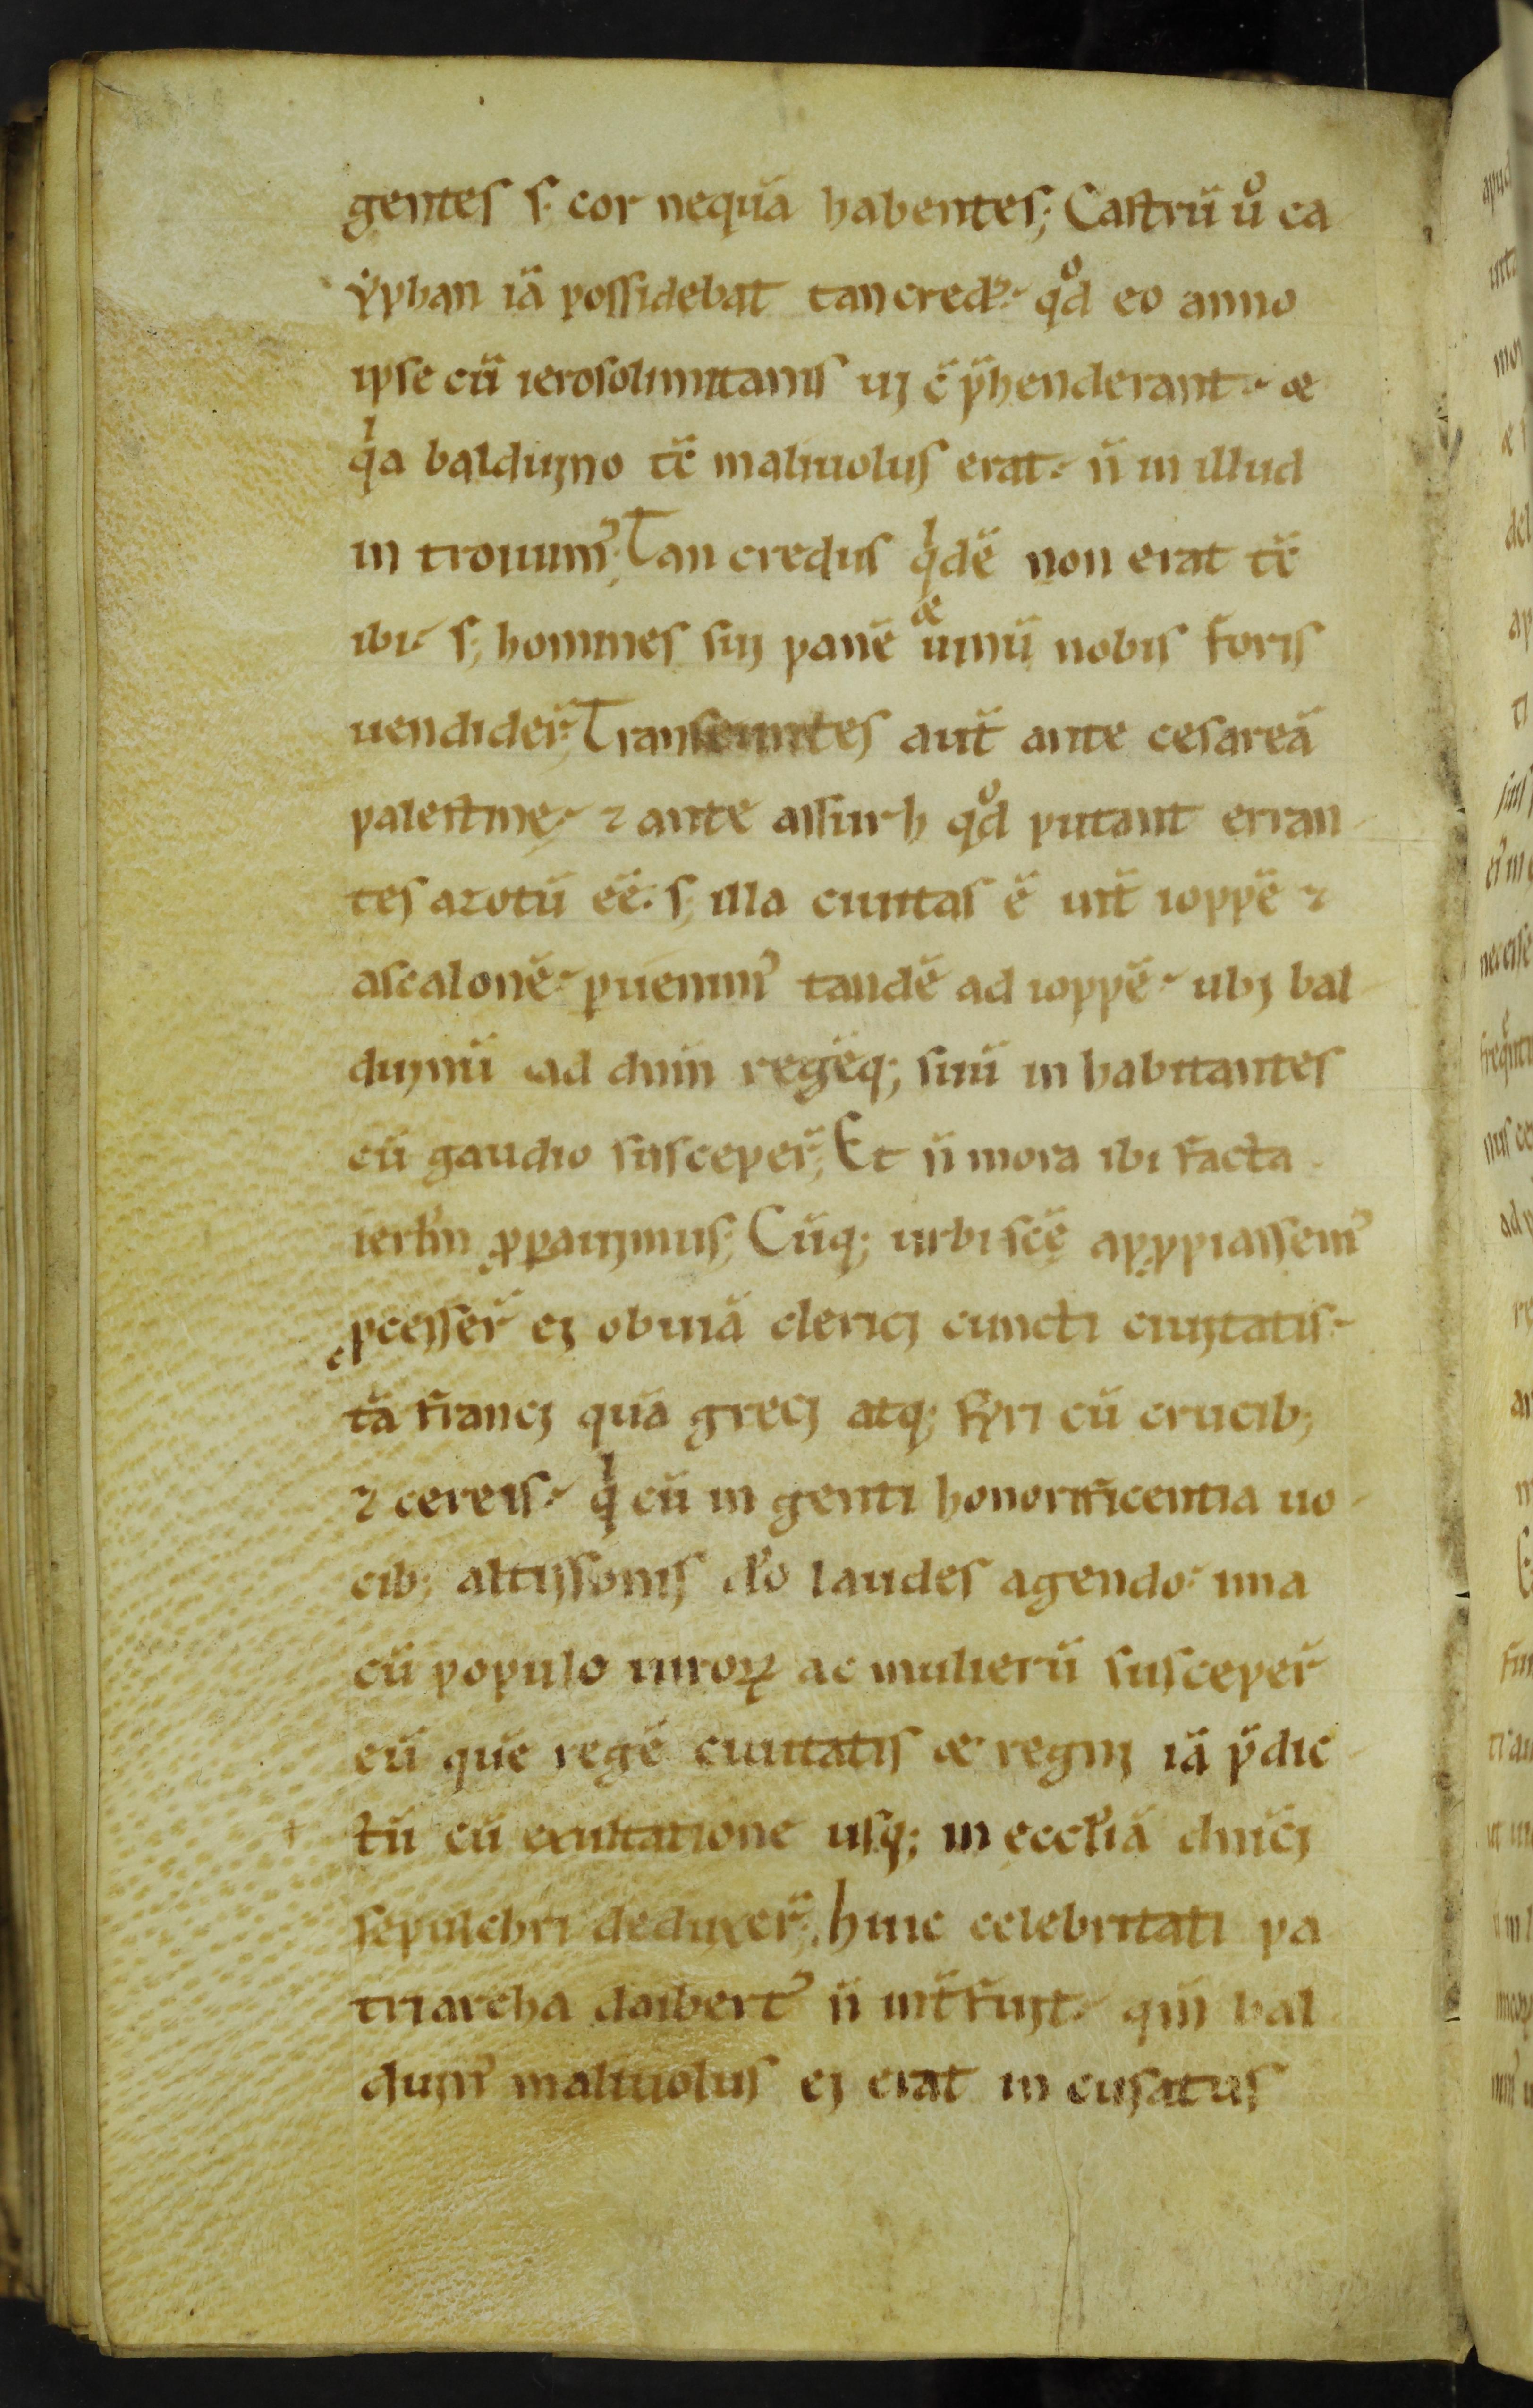 gentes s; cor nequā habentes; Castrū uͦ ca
yphan iā possidebat tancredꝰ· qͦd eo anno
ipse cū ierosolimitanis ui c̄p̄henderant· &
qⁱa balduino tc̄ maliuolus erat· n̄ in illud
introiuimꝰ; Tancredus qⁱdē non erat tc̄
ibi· s; homines sui panē & uinū nobis foris
uendider̄; Transeuntes aut̄ ante cesareā
palestinę· ⁊ ante assurh qͦd putant erran
tes azotū ee̅· s; illa ciuitas ē int̄ ioppē ⁊
ascalonē· ꝑuenimꝰ tandē ad ioppē· ubi bal
duinū ad dn̄m regēq; suū inhabitantes
cū gaudio susceper̄; Et n̄ mora ibi facta
ierłm ꝓꝑauimus; Cūq; urbi scę̄ apꝓpiassemꝰ
ꝓcesser̄ ei obuiā clerici cuncti ciuitatis·
tā franci quā greci atq; syri cū crucib;
⁊ cereis· qⁱ cū ingenti honorificentia uo
cib; altissonis dō laudes agendo· una
cū populo uiroꝝ ac mulierū susceper̄
eū que regē ciuitatis & regni iā p̄dic
tū cū exultatione usq; in eccłiā dn̄ici
sepulchri deduxer̄; huic celebritati pa
triarcha daibertꝰ n̄ int̄fuit· qm̄ bal
duinꝰ maliuolus ei erat incusatus